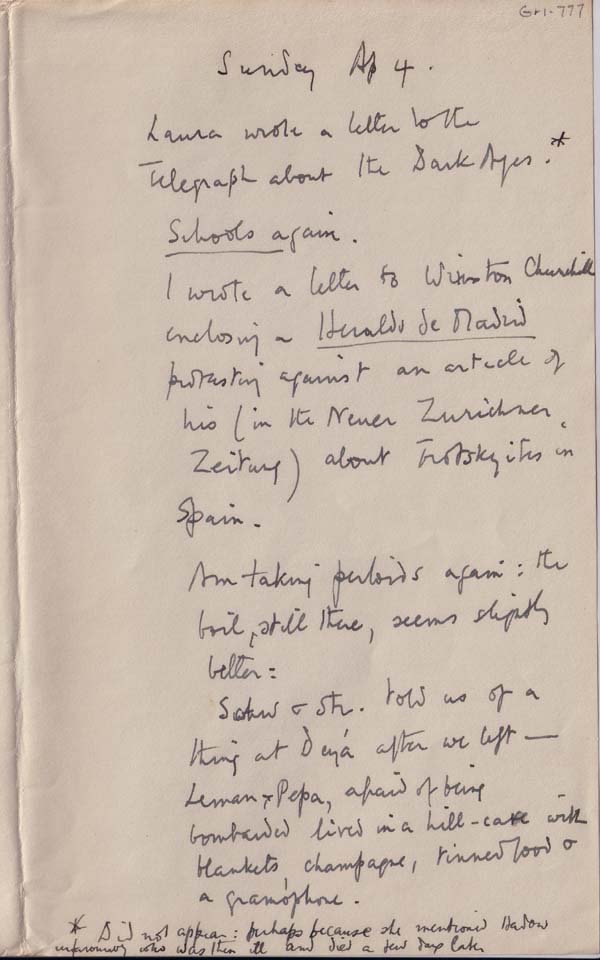 GrI-777
Sunday Ap 4.
Laura wrote a letter to the
Telegraph about the Dark Ages.*
Schools again.
I wrote a letter to Winston Churchill
enclosing a Heraldo de Madrid
protesting against an article of
his (in the Neuer Zurichner
Zeitung) about Trotskyites in
Spain.
Am taking perloids again: the
boil, still there, seems slightly
better:
& Str. told us of a
thing at Deyá after we left —
Leman & Pepa, afraid of being
bombarded lived in a hill-cave with
blankets, champagne, tinned food &
a gramophone.
* Did not appear: perhaps because she mentioned Hadow
who was then ill and died a few days later